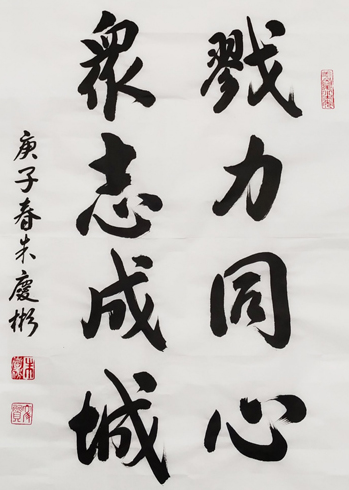 戮力同心
眾志成城
庚子春朱慶彬